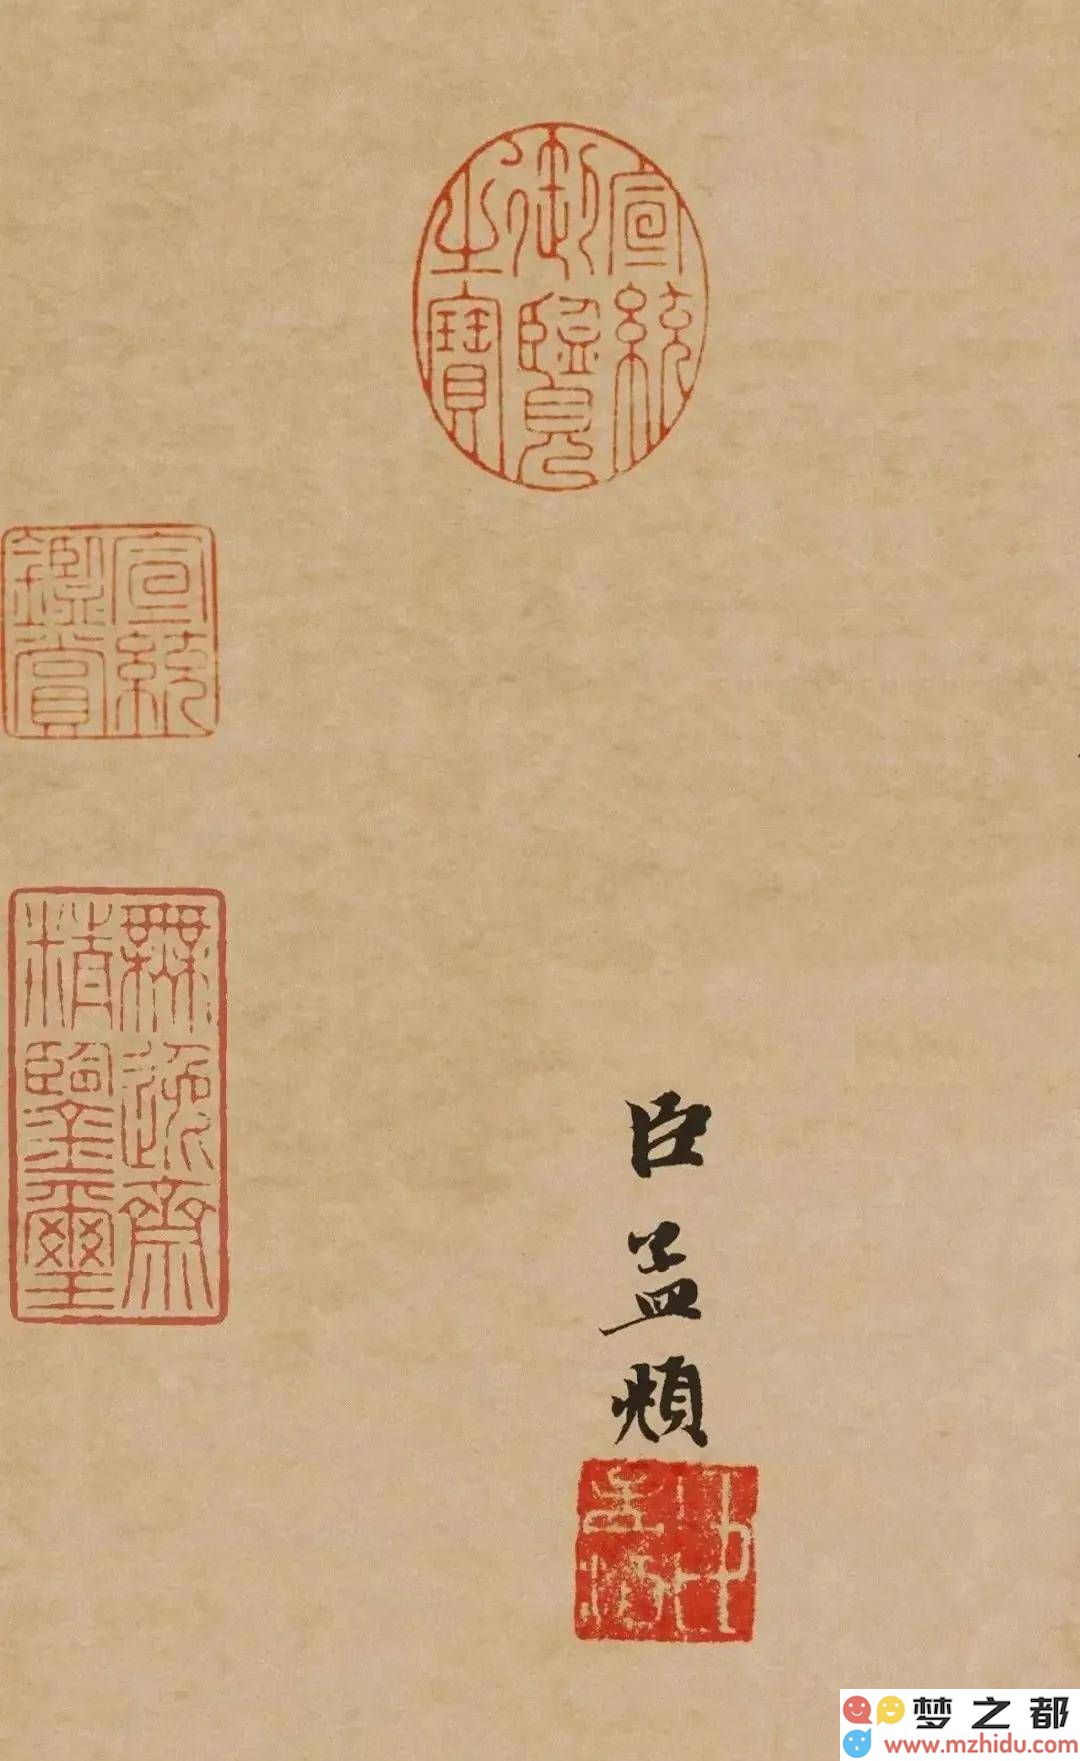 宣統
御覽
之寶
宣統
鑑賞
無逸齋
精鑒璽
臣孟頫
梦之都
www.mzhidu.com